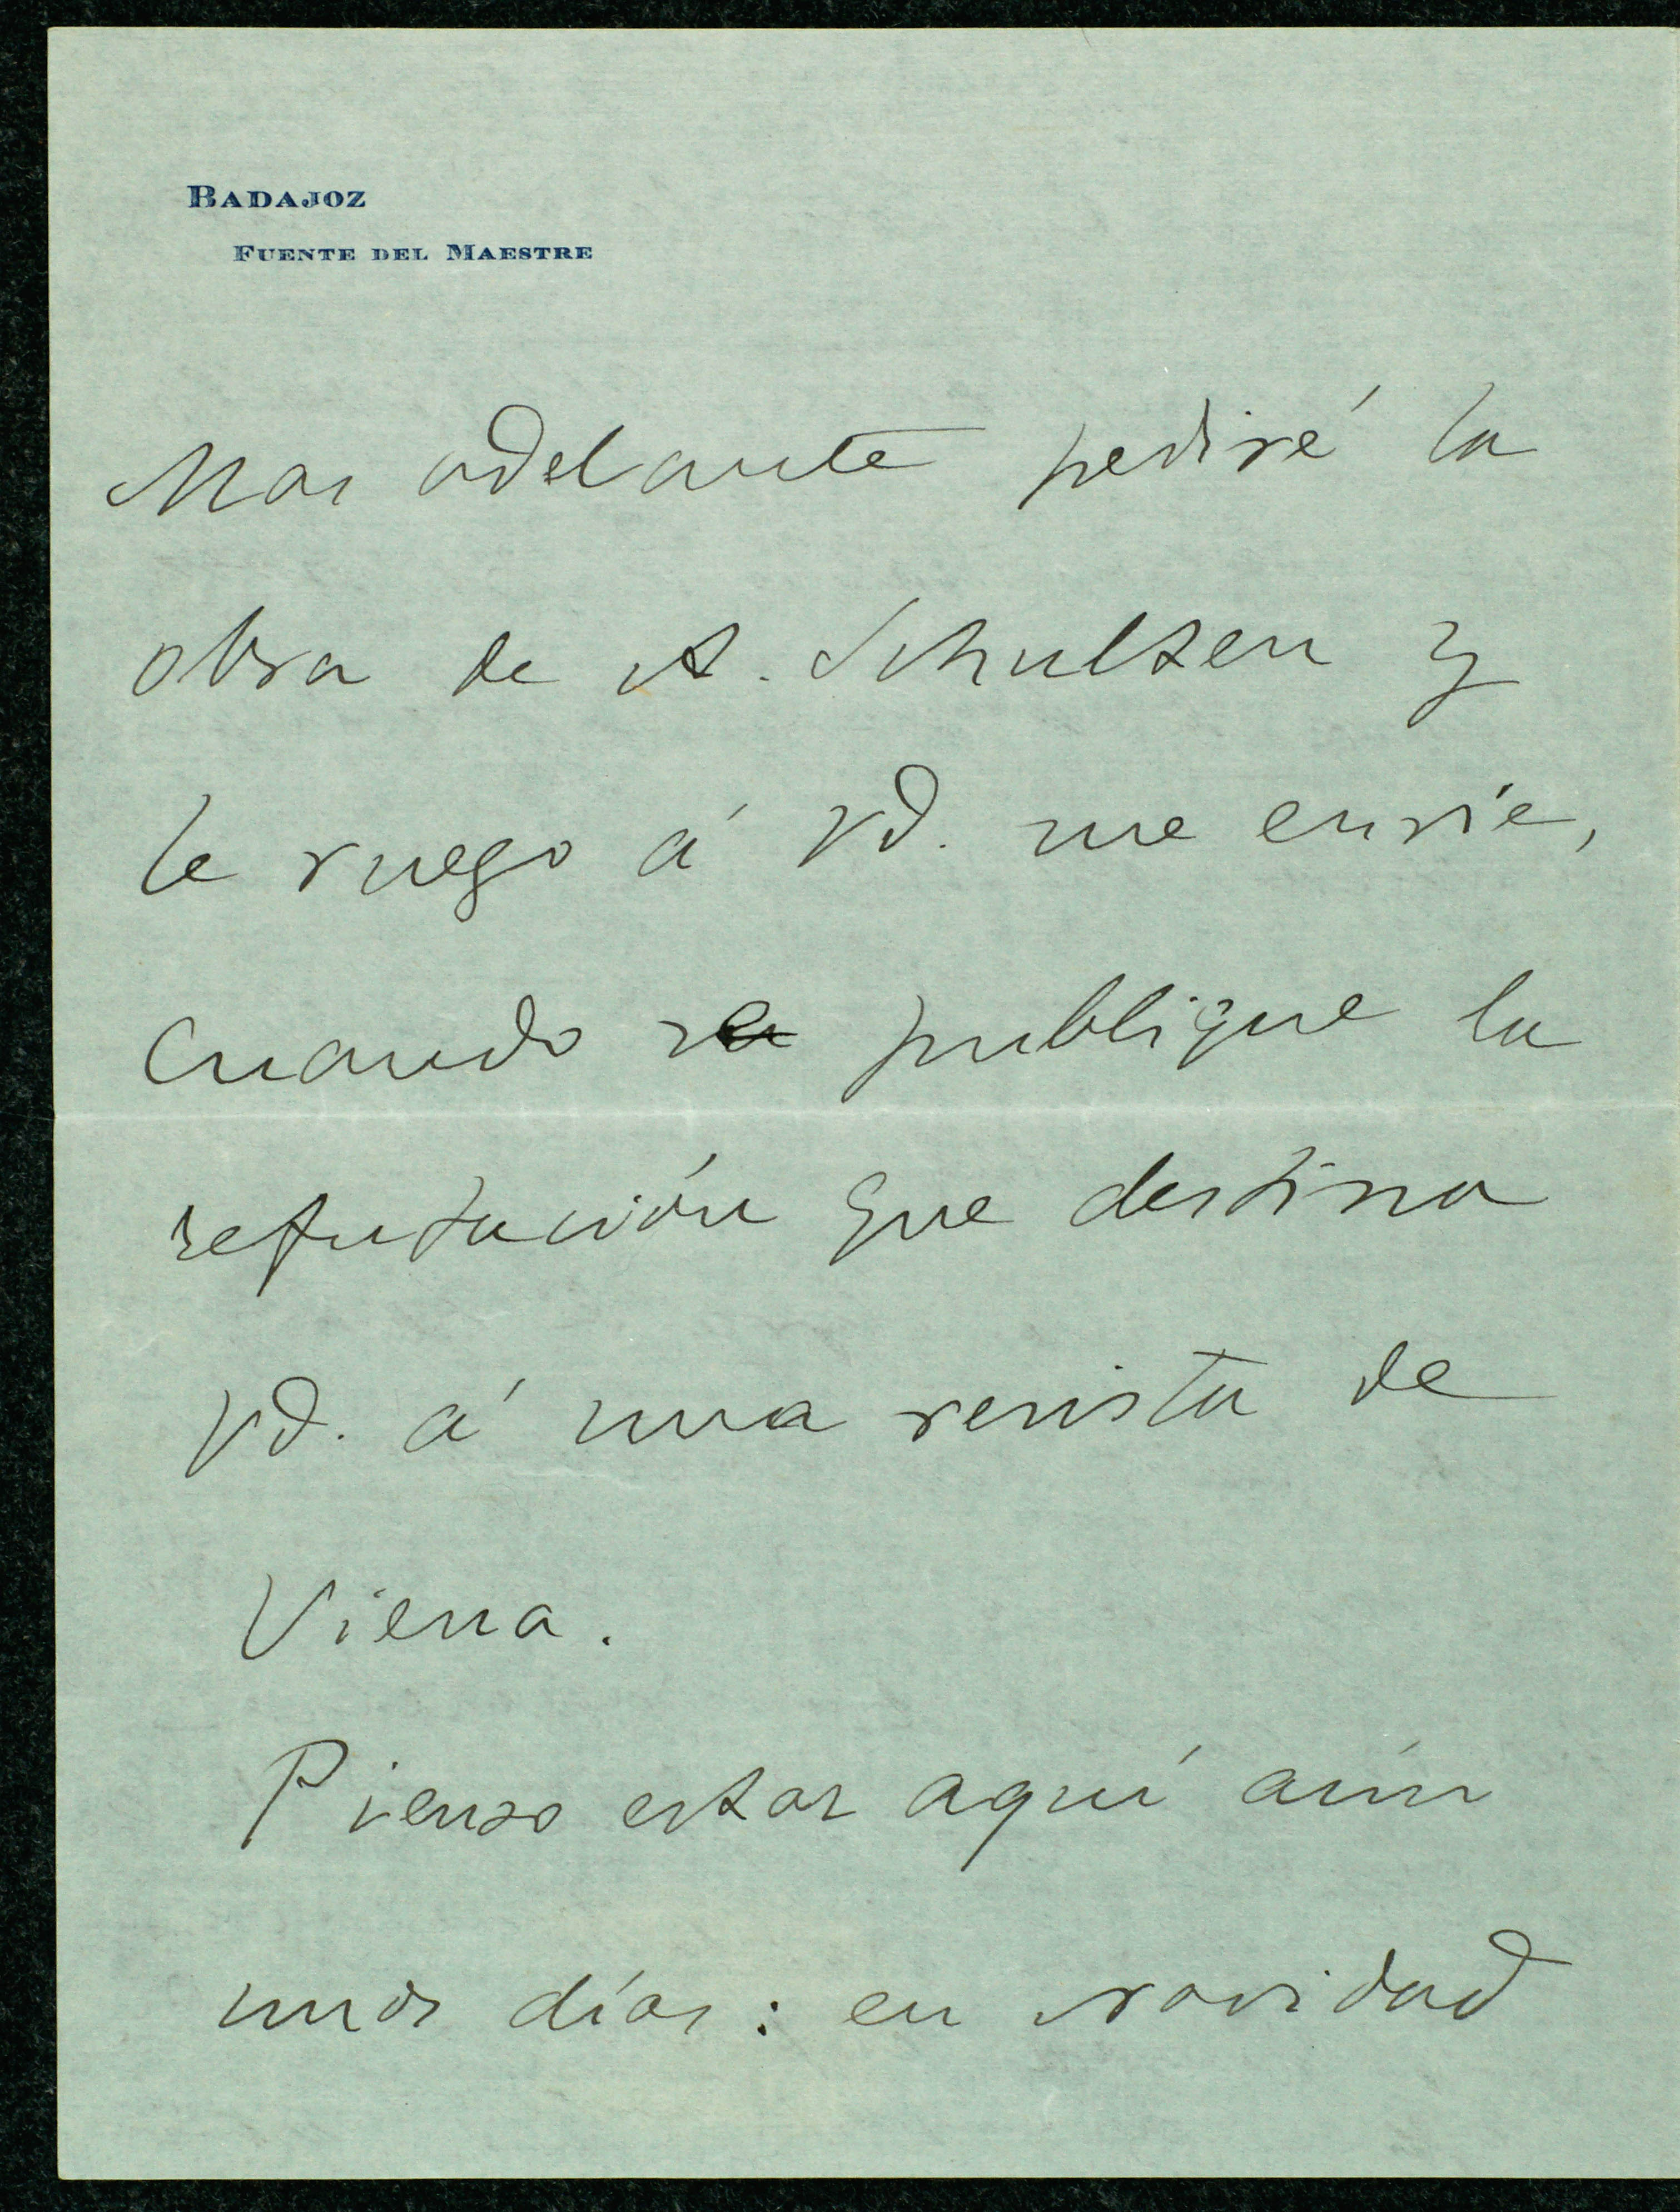 BADAJOZ
FUENTE DEL MAESTRE
Mas adelante pediré la
obra de A. Schultzen y
le ruego á Vd. me envíe,
cuando se publique la
refutación que destina
Vd. á una revista de
Viena.
Pienso estar aquí aún
unos días: en navidad